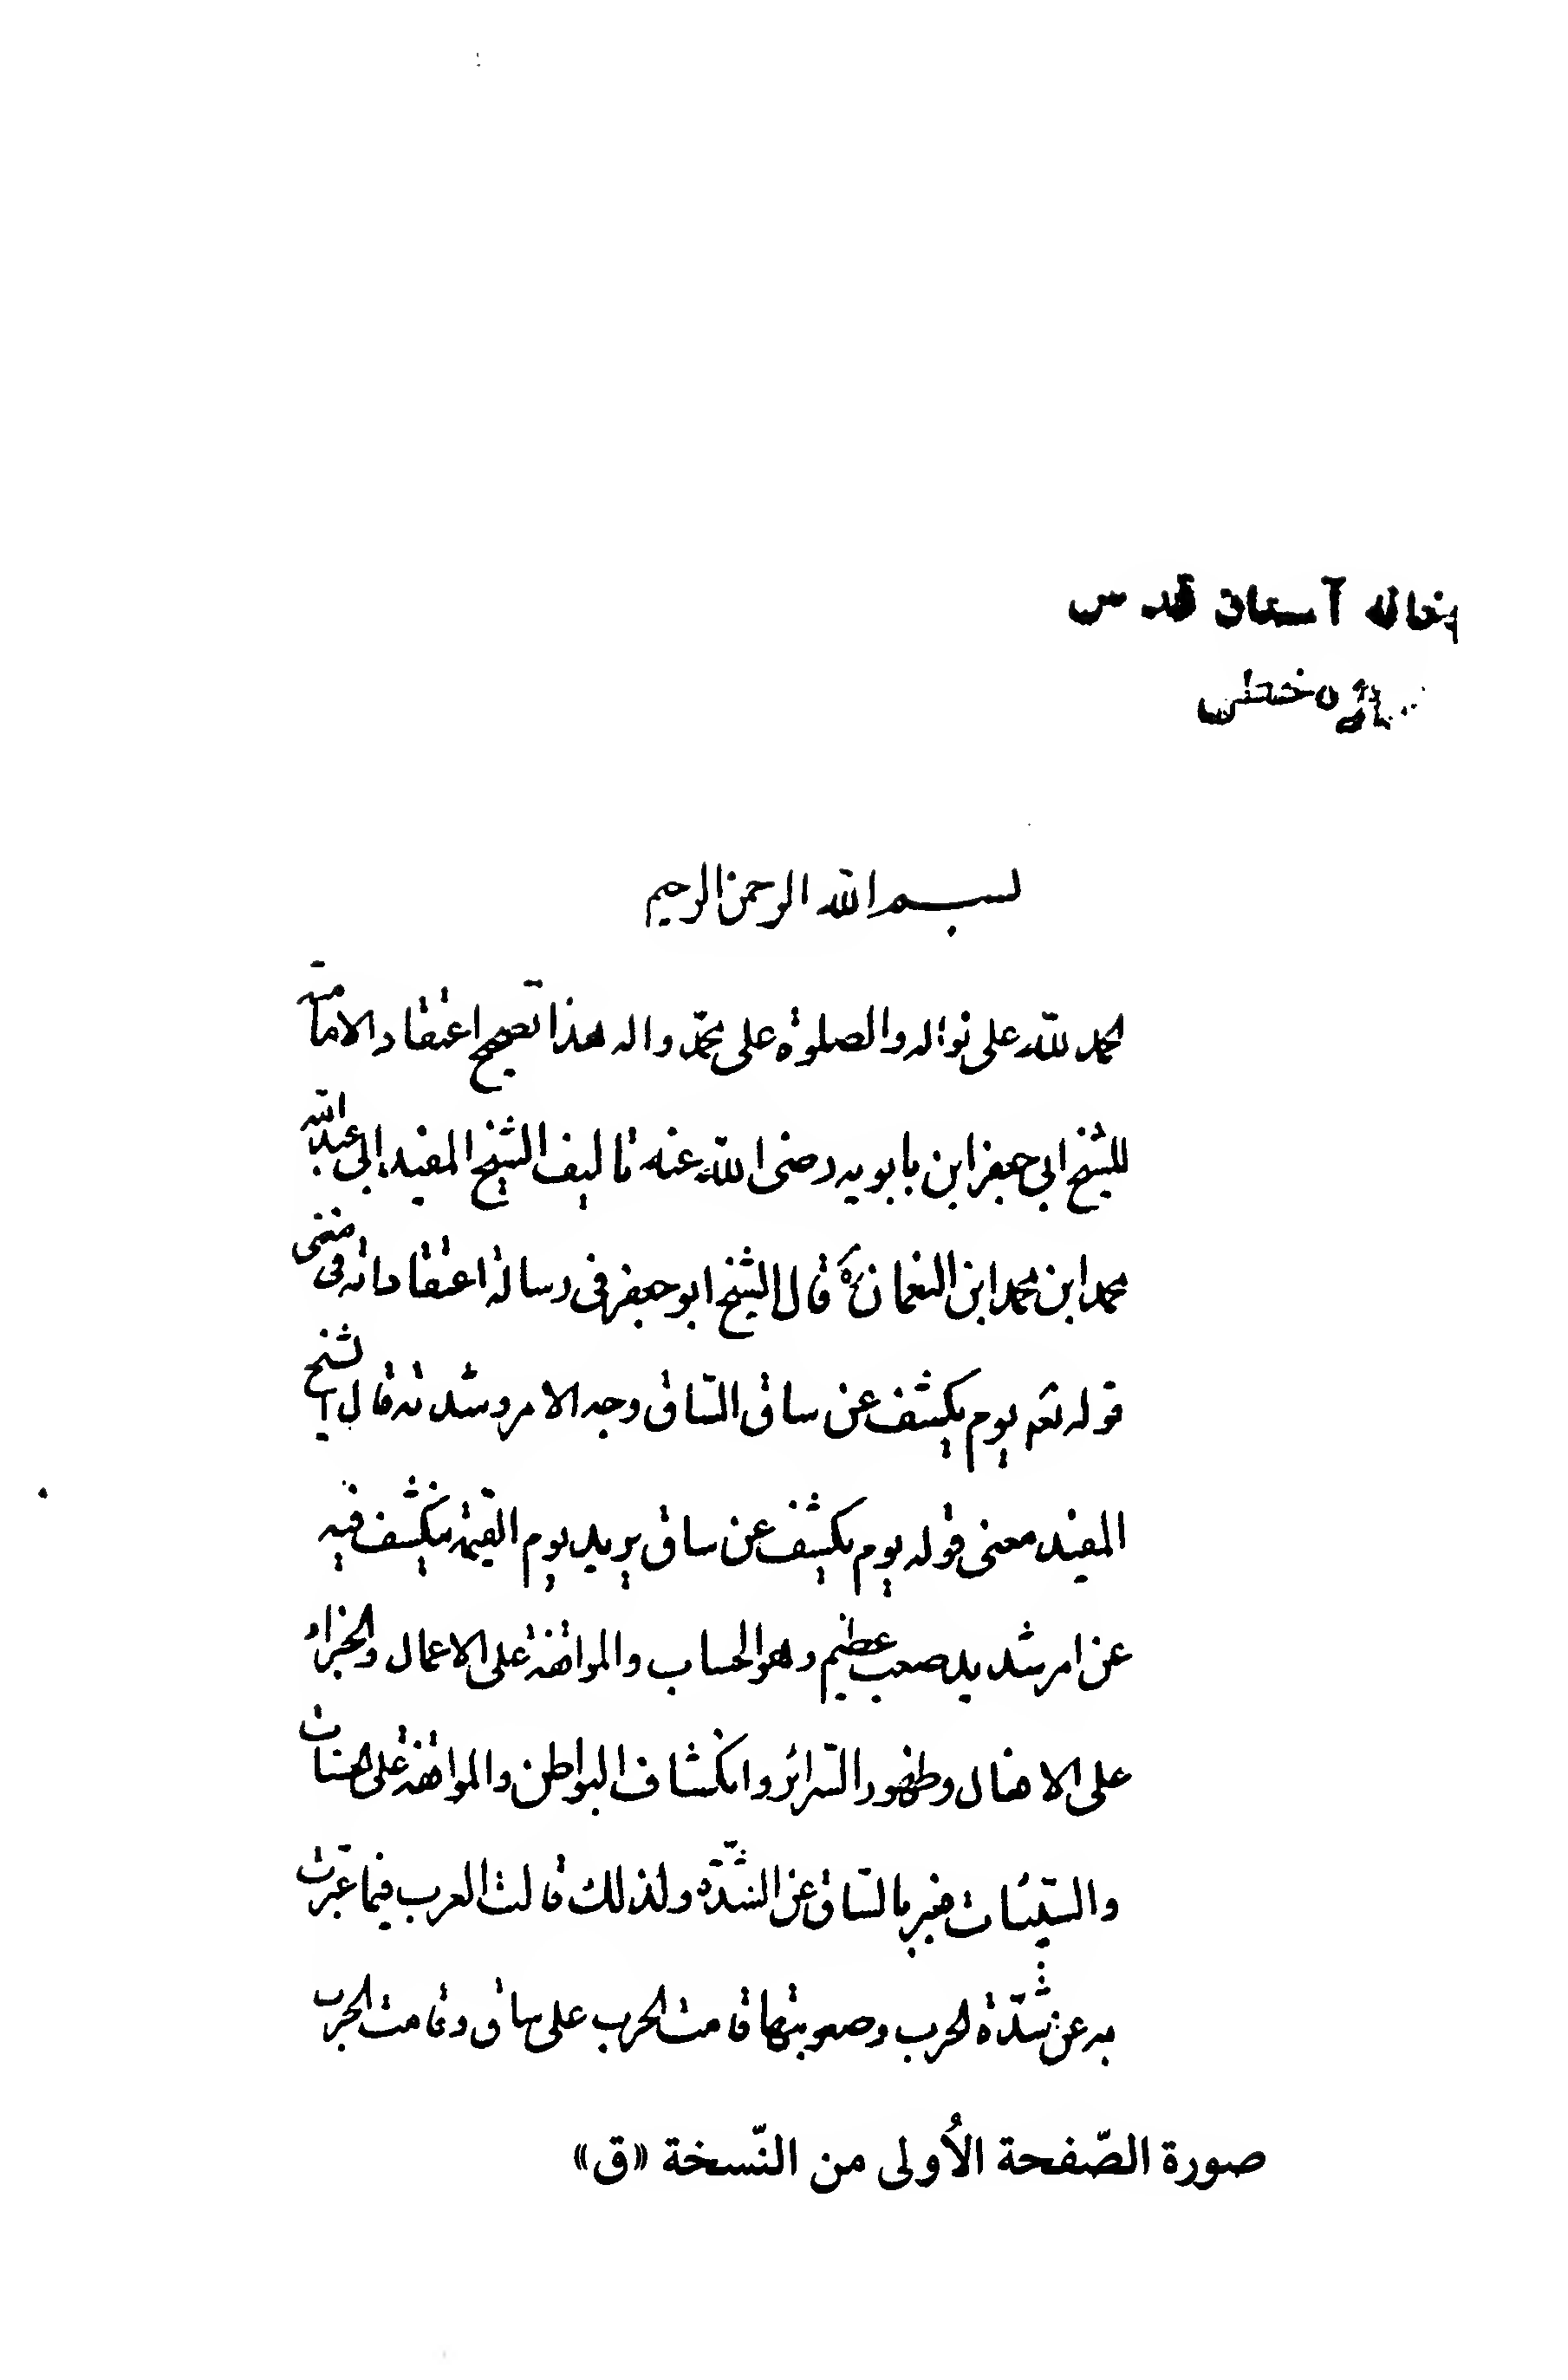 خانه آستان قدس
خطی
بسم الله الرحمن الرحيم
الحمد لله على نواله والصلوة على محمّد واله هذا تصحيح اعتقاد الامامية
للشيخ ابي جعفر ابن بابويه رضى الله عنه تاليف الشيخ المفيد ابي عبد الله
محمد ابن محمد ابن النعمان ره قال الشيخ ابو جعفر فى رسالة اعتقاداته فى معنى
قوله تعم يوم يكشف عن ساق السّاق وجه الامر وشدته قال الشيخ
المفيد معنى قوله يوم يكشف عن ساق يريد يوم القيمة ينكشف فيه
عن امر شديد صعب عظيم وهو الحساب والمواقفة على الاعمال والجزاء
على الافعال وظهور السّرائر وانكشاف البواطن والمواقفة على الحسنات
والسّيّئات فعبر بالسّاق عن الشّدّة ولذلك قالت العرب فيما عبّرت
به عن شدّة الحرب وصعوبتها قامت الحرب على ساق وقامت الحرب
صورة الصّفحة الاُولى من النّسخة «ق»